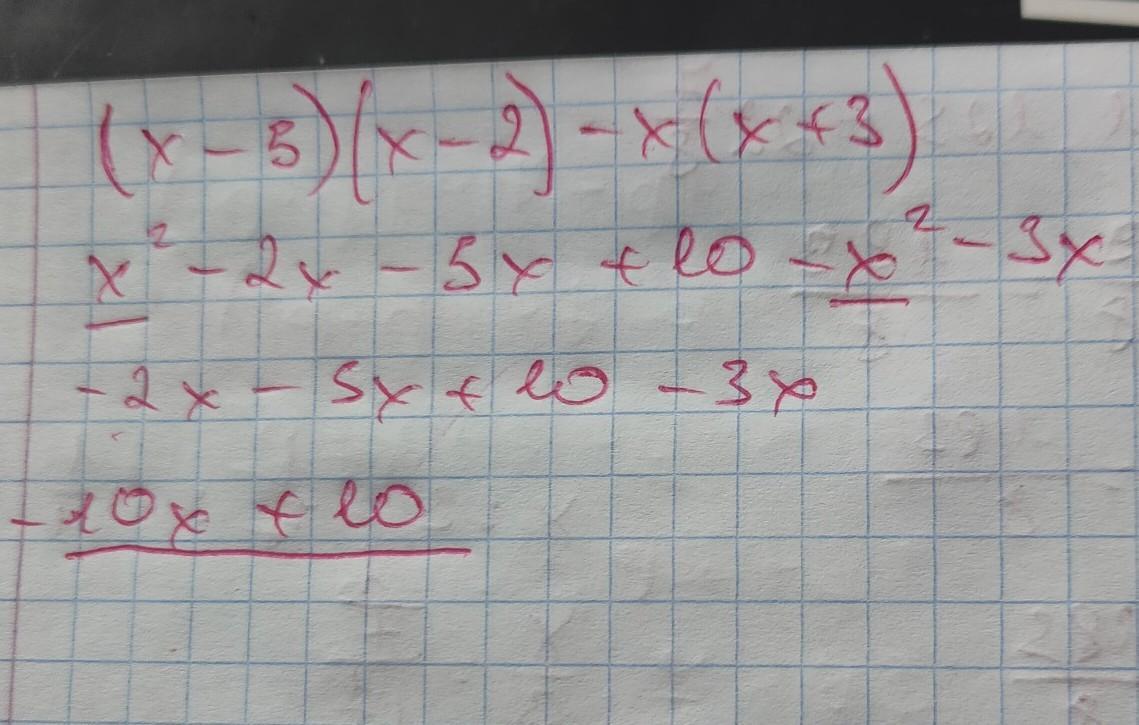 (x - 5)(x - 2) - x(x + 3)
x² - 2x - 5x + 10 - x² - 3x
- 2x - 5x + 10 - 3x
- 10x + 10